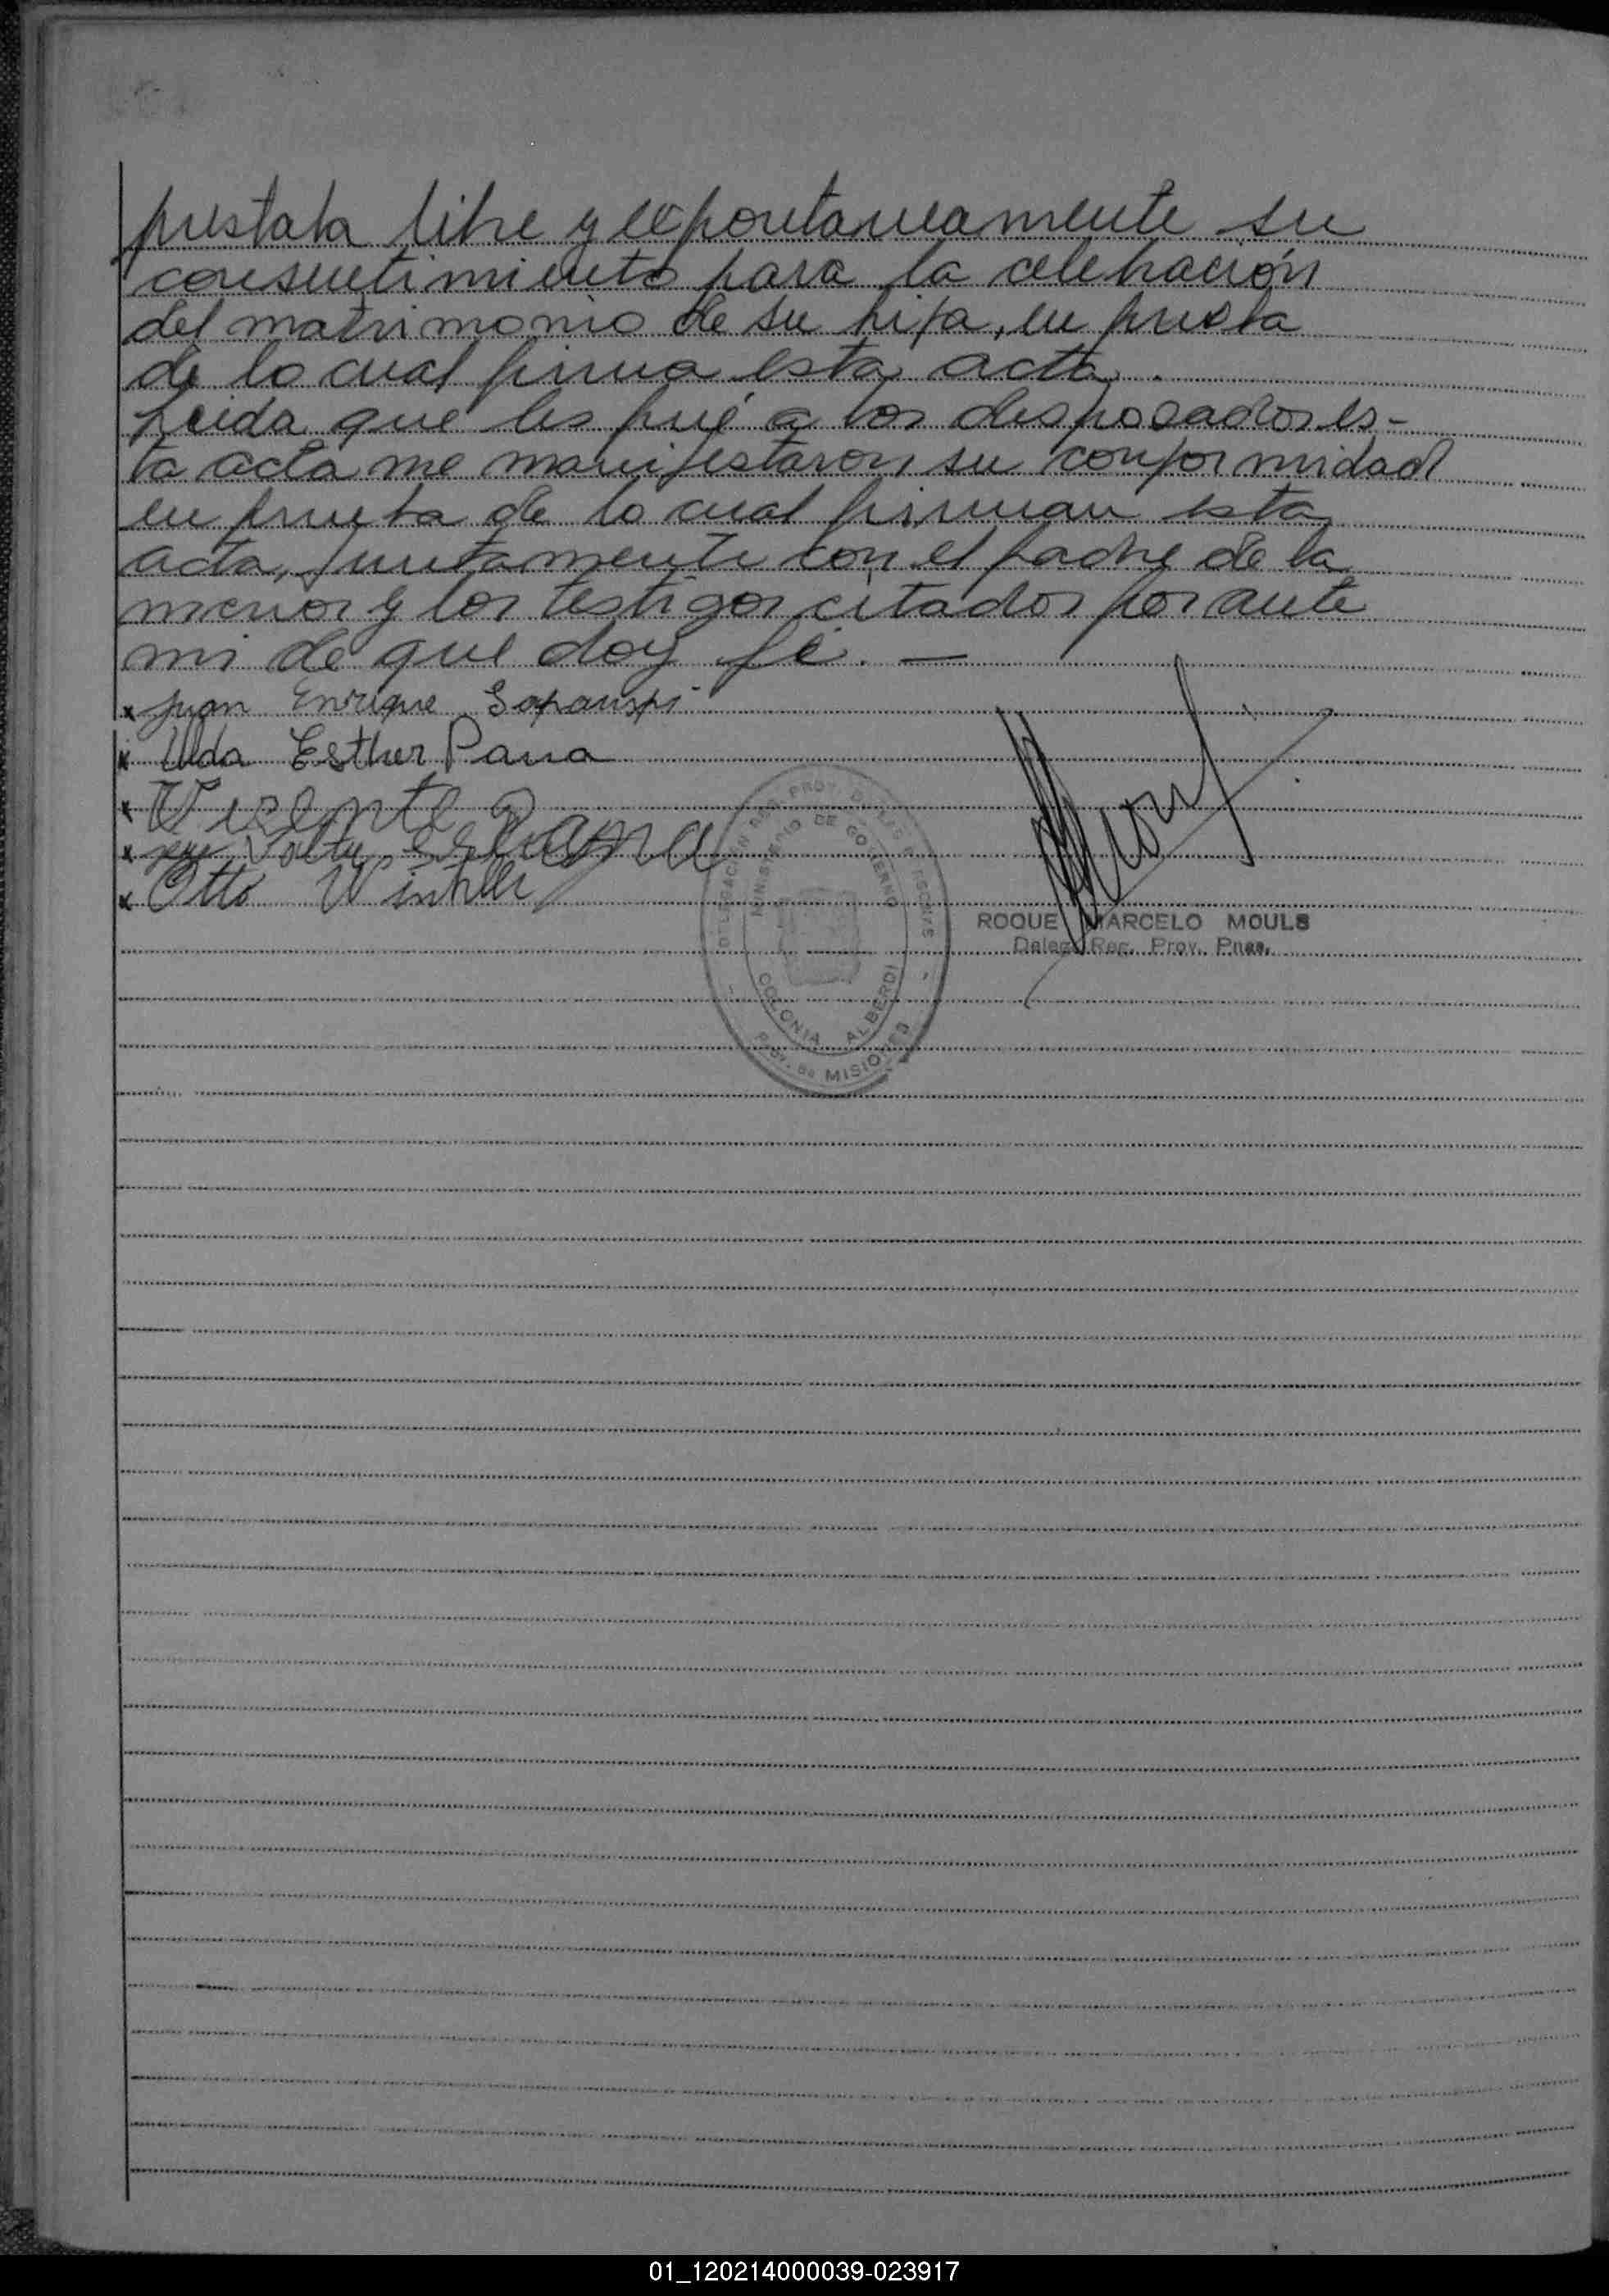 prestaba libre y expontaneamente su
consentimiento para la celebración
del matrimonio de su hija, en prueba
de lo cual firma esta acta.
Leida que les fué a los desposados es-
ta acta me manifestaron su conformidad
en prueba de lo cual firman esta
acta, juntamente con el padre de la
menor y los testigos citados por ante
mi de que doy fé. —
x Juan Enrique
x Ilda Esther
x Vicente
x
x Otto Winkler
DELEGACIÓN REG. PROV. DE LAS PERSONAS
MINISTERIO DE GOBIERNO
COLONIA ALBERDI
Prov. de MISIONES
ROQUE MARCELO MOULS
Deleg. Reg. Prov. Pnas.
01_120214000039-023917